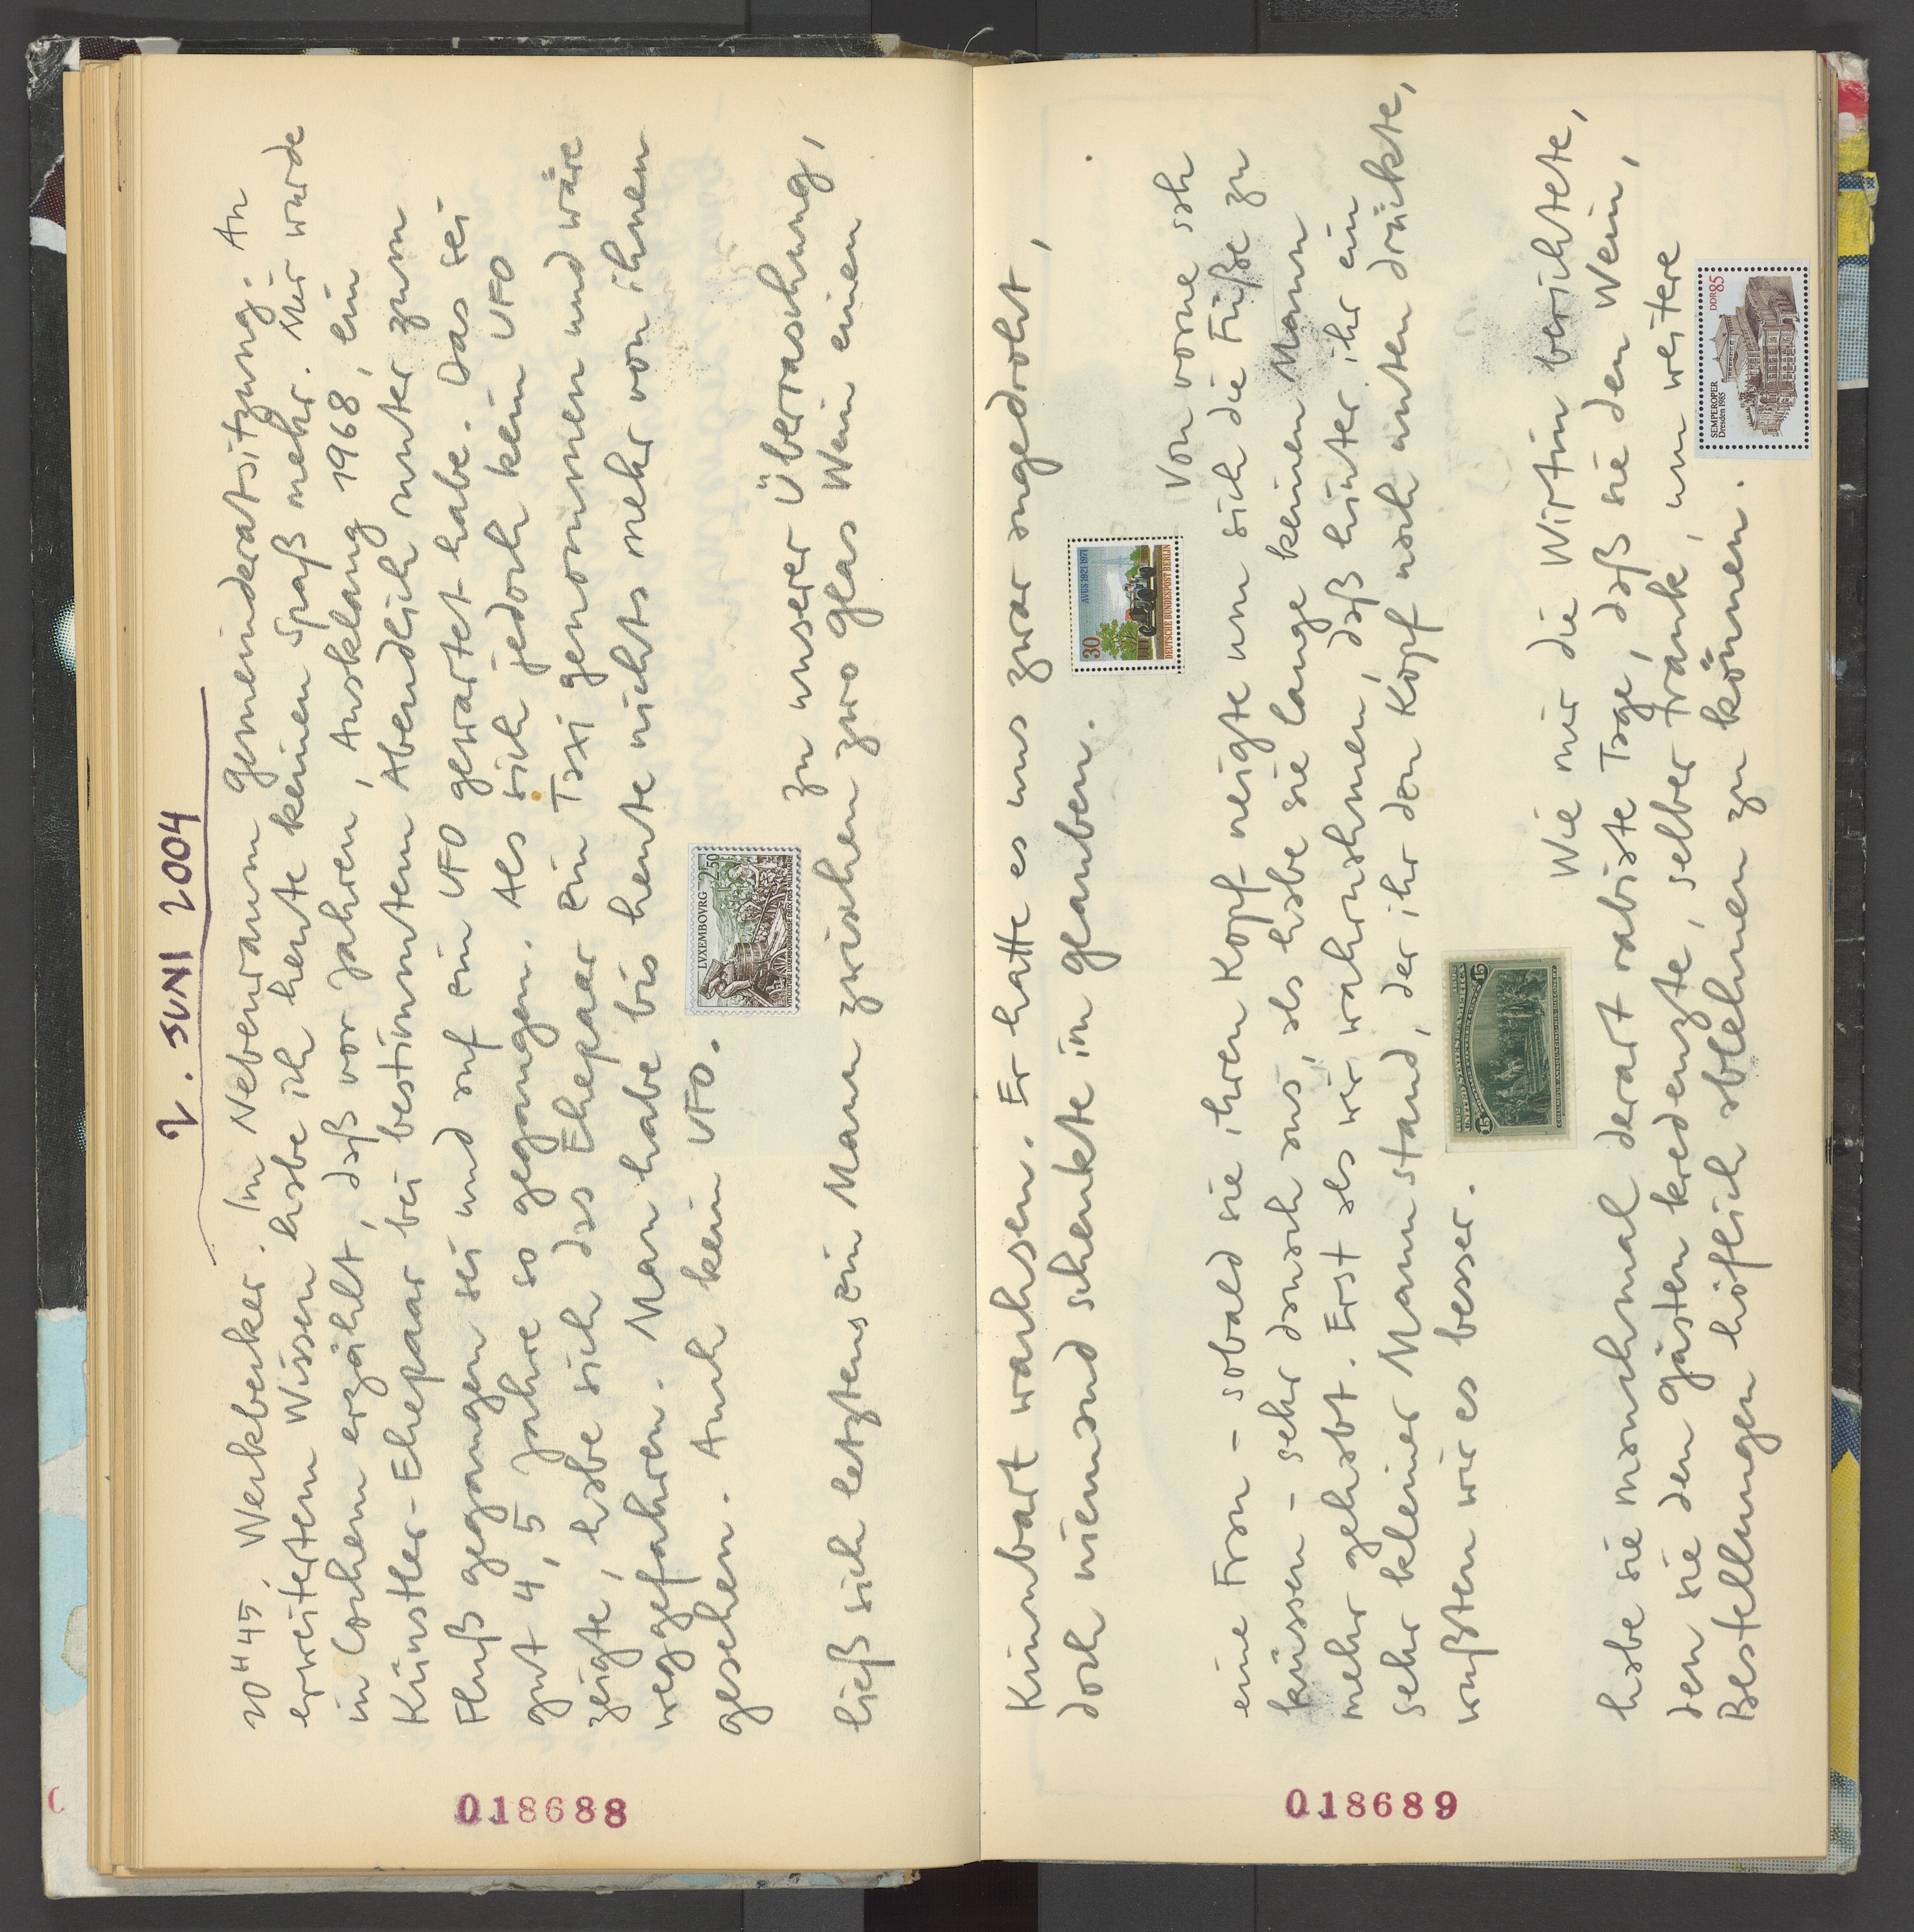 2. JUNI 2004
20H45. Werkbecker. Im Nebenraum Gemeinderatsitzung. An
erweitertem Wissen habe ich heute keinen Spaß mehr. Mir wurde
in Cochem erzählt, daß vor Jahren, Ausklang 1968, ein
Künstler-Ehepaar bei bestimmtem Abendlich runter zum
Fluß gegangen sei und auf ein UFO gewartet habe. Das sei
gut 4, 5 Jahre so gegangen. Als sich jedoch kein UFO
zeigte, habe sich das Ehepaar ein Taxi genommen und wäre
weggefahren. Man habe bis heute nichts mehr von ihnen
gesehen. Auch kein UFO.
LVXEMBOVRG 2.50
VITICULTURE LUXEMBOURGEOISE DEUX FOIS MILLENAIRE
Zu unserer Überraschung,
ließ sich letztens ein Mann zwischen zwo Glas Wein einen
018688
Kinnbart wachsen. Er hatte es uns zwar angedroht,
doch niemand schenkte im Glauben.
30 AVUS 1921-1971
DEUTSCHE BUNDESPOST BERLIN
Von vorne sah
eine Frau – sobald sie ihren Kopf neigte um sich die Füße zu
küssen – sehr danach aus, als habe sie lange keinen Mann
mehr gehabt. Erst als wir wahrnahmen, daß hinter ihr ein
sehr kleiner Mann stand, der ihr den Kopf nach unten drückte,
wußten wir es besser.
15 UNITED STATES OF AMERICA 15
Wie mir die Wirtin berichtete,
habe sie manchmal derart rabiate Tage, daß sie den Wein,
den sie den Gästen kredenzte, selber trank, um weitere
Bestellungen höflich ablehnen zu können.
SEMPEROPER
Dresden 1985
DDR 85
018689